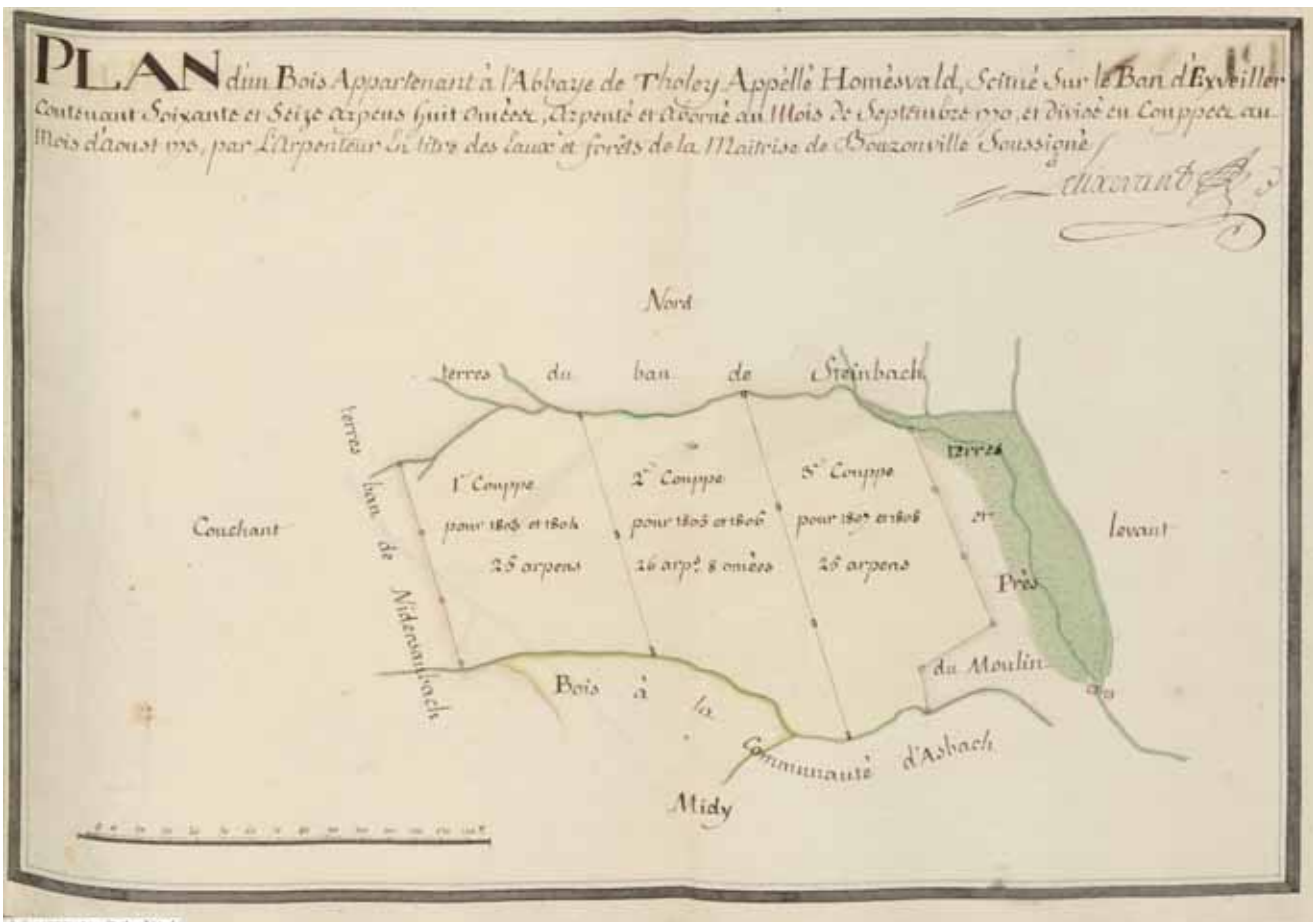 PLAN d'un Bois Appartenant à l'Abbaye de Tholey Appèllé Homèsvald, Scitué Sur le Ban d'Exveiller
Contenant Soixante et Seize arpens huit omèes, Arpenté et Aborné au Mois de Septembre et divisé en Couppes au
Mois d'aoust par L'Arpenteur En titre des Eaux et forêts de la Maitrise de Bouzonville Soussigné
Nord
terres du ban de Steinbach
terres ban de Nidersaubach
Couchant
1re Couppe
pour 1803 et 1804
25 arpens
2e Couppe
pour 1805 et 1806
26 arpt. 8 omèes
3e Couppe
pour 1807 et 1808
25 arpens
terres
et
Près
du Moulin
levant
Bois à la Communauté d'Asbach
Midy